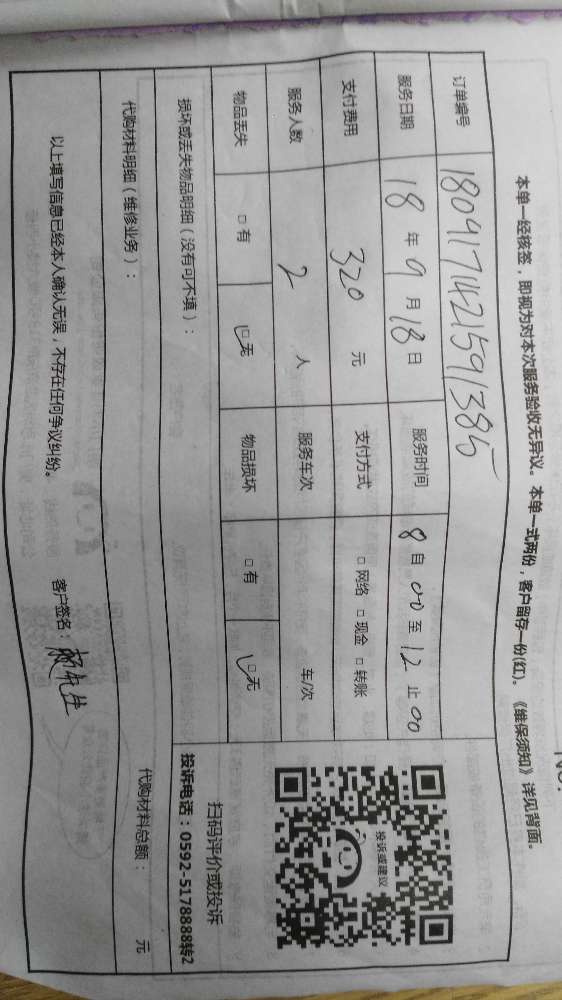 No.
本单一经核签，即视为对本次服务验收无异议。本单一式两份，客户留存一份(红)。《维保须知》详见背面。
订单编号 1804171421591385
服务日期 18 年 9 月 18 日 服务时间 8 自 00 至 12 止 00
支付费用 320 元 支付方式 □ 网络 □ 现金 □ 转账
服务人数 2 人 服务车次 车/次
物品丢失 □ 有 □ 无 物品损坏 □ 有 □ 无
损坏或丢失物品明细（没有可不填）：
投诉或建议
扫码评价或投诉
投诉电话：0592-5178888转2
代购材料明细（维修业务）：
代购材料总额： 元
以上填写信息已经本人确认无误，不存在任何争议纠纷。 客户签名：